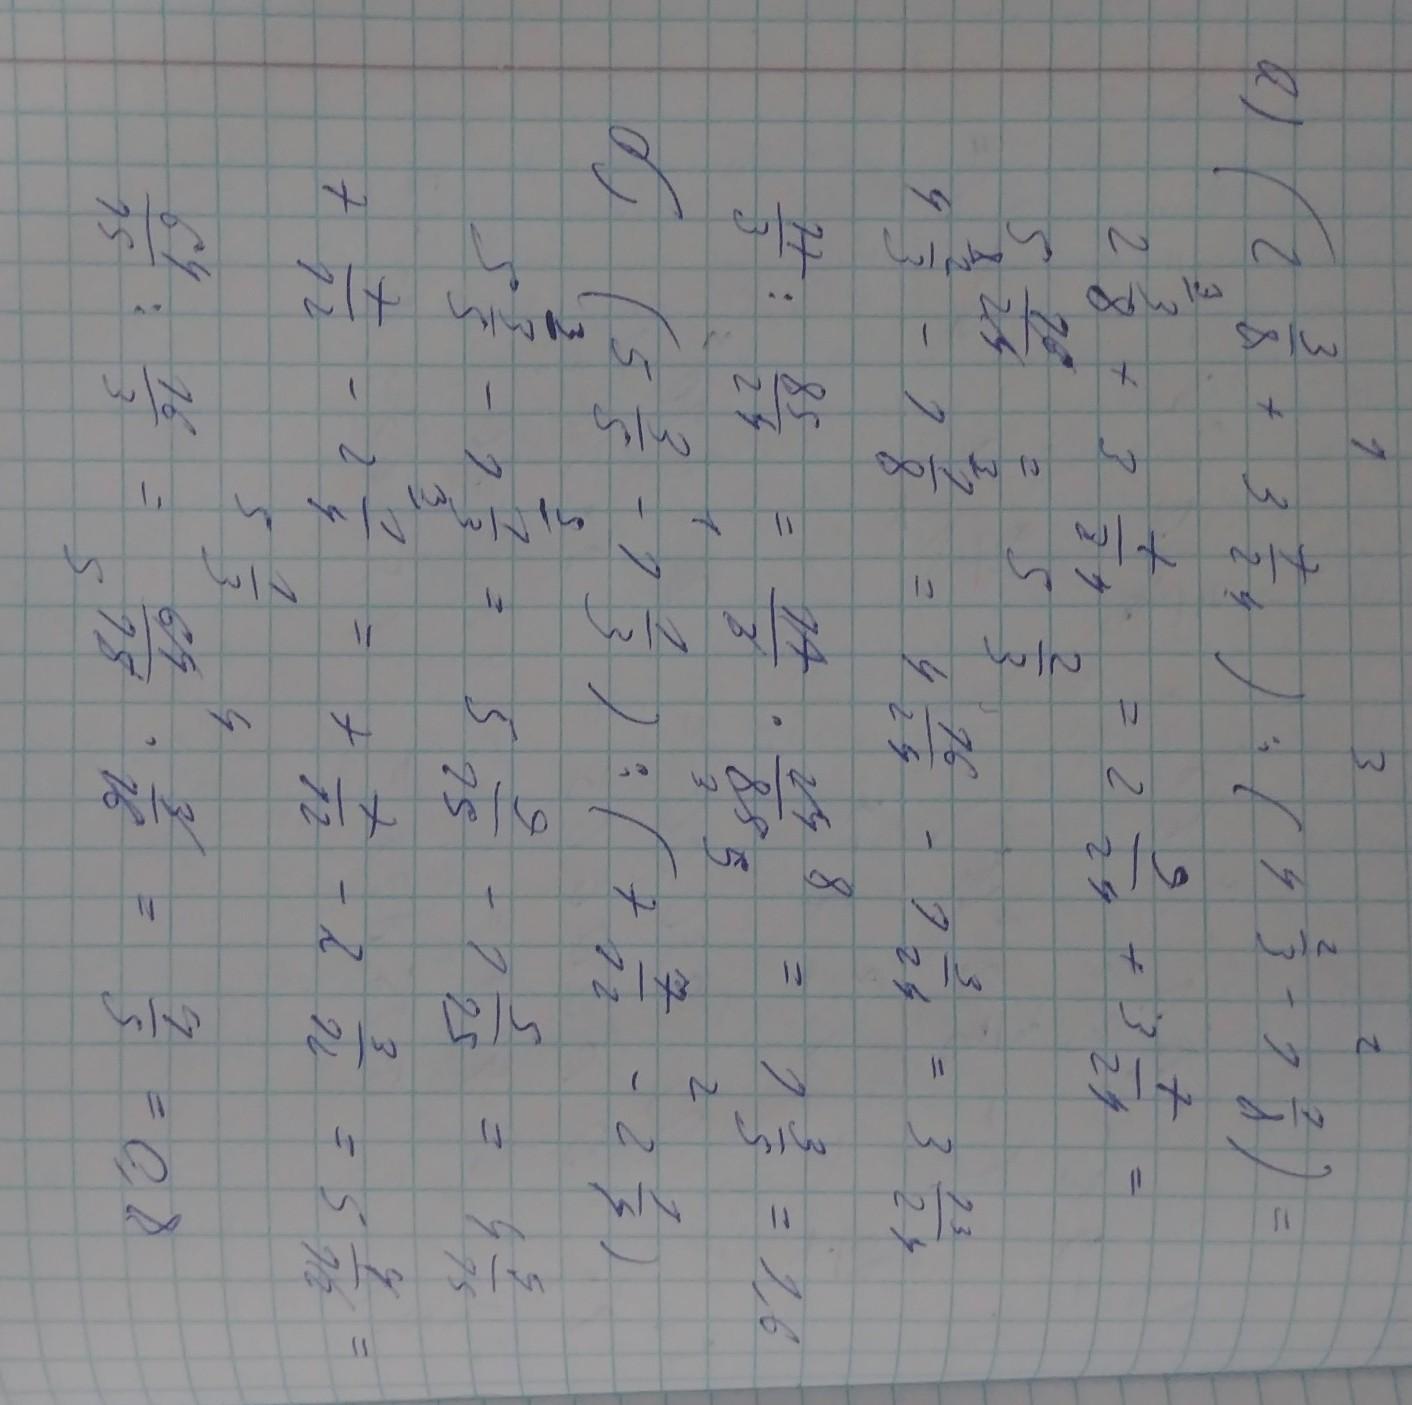 1 3 2
а) (2 3/8 + 3 7/24) : (4 2/3 - 1 1/8) =
2 3/8 + 3 7/24 = 2 9/24 + 3 7/24 =
5 16/24 = 5 2/3
4 2/3 - 1 1/8 = 4 16/24 - 1 3/24 = 3 13/24
17/3 : 85/24 = 17/3 · 24/85 = 1 3/5 = 1,6
1 2
б) (5 3/5 - 1 1/3) : (7 7/12 - 2 1/4)
5 3/5 - 1 1/3 = 5 9/15 - 1 5/15 = 4 4/15
7 7/12 - 2 1/4 = 7 7/12 - 2 3/12 = 5 4/12 =
5 1/3
64/15 : 16/3 = 64/15 · 3/16 = 4/5 = 0,8